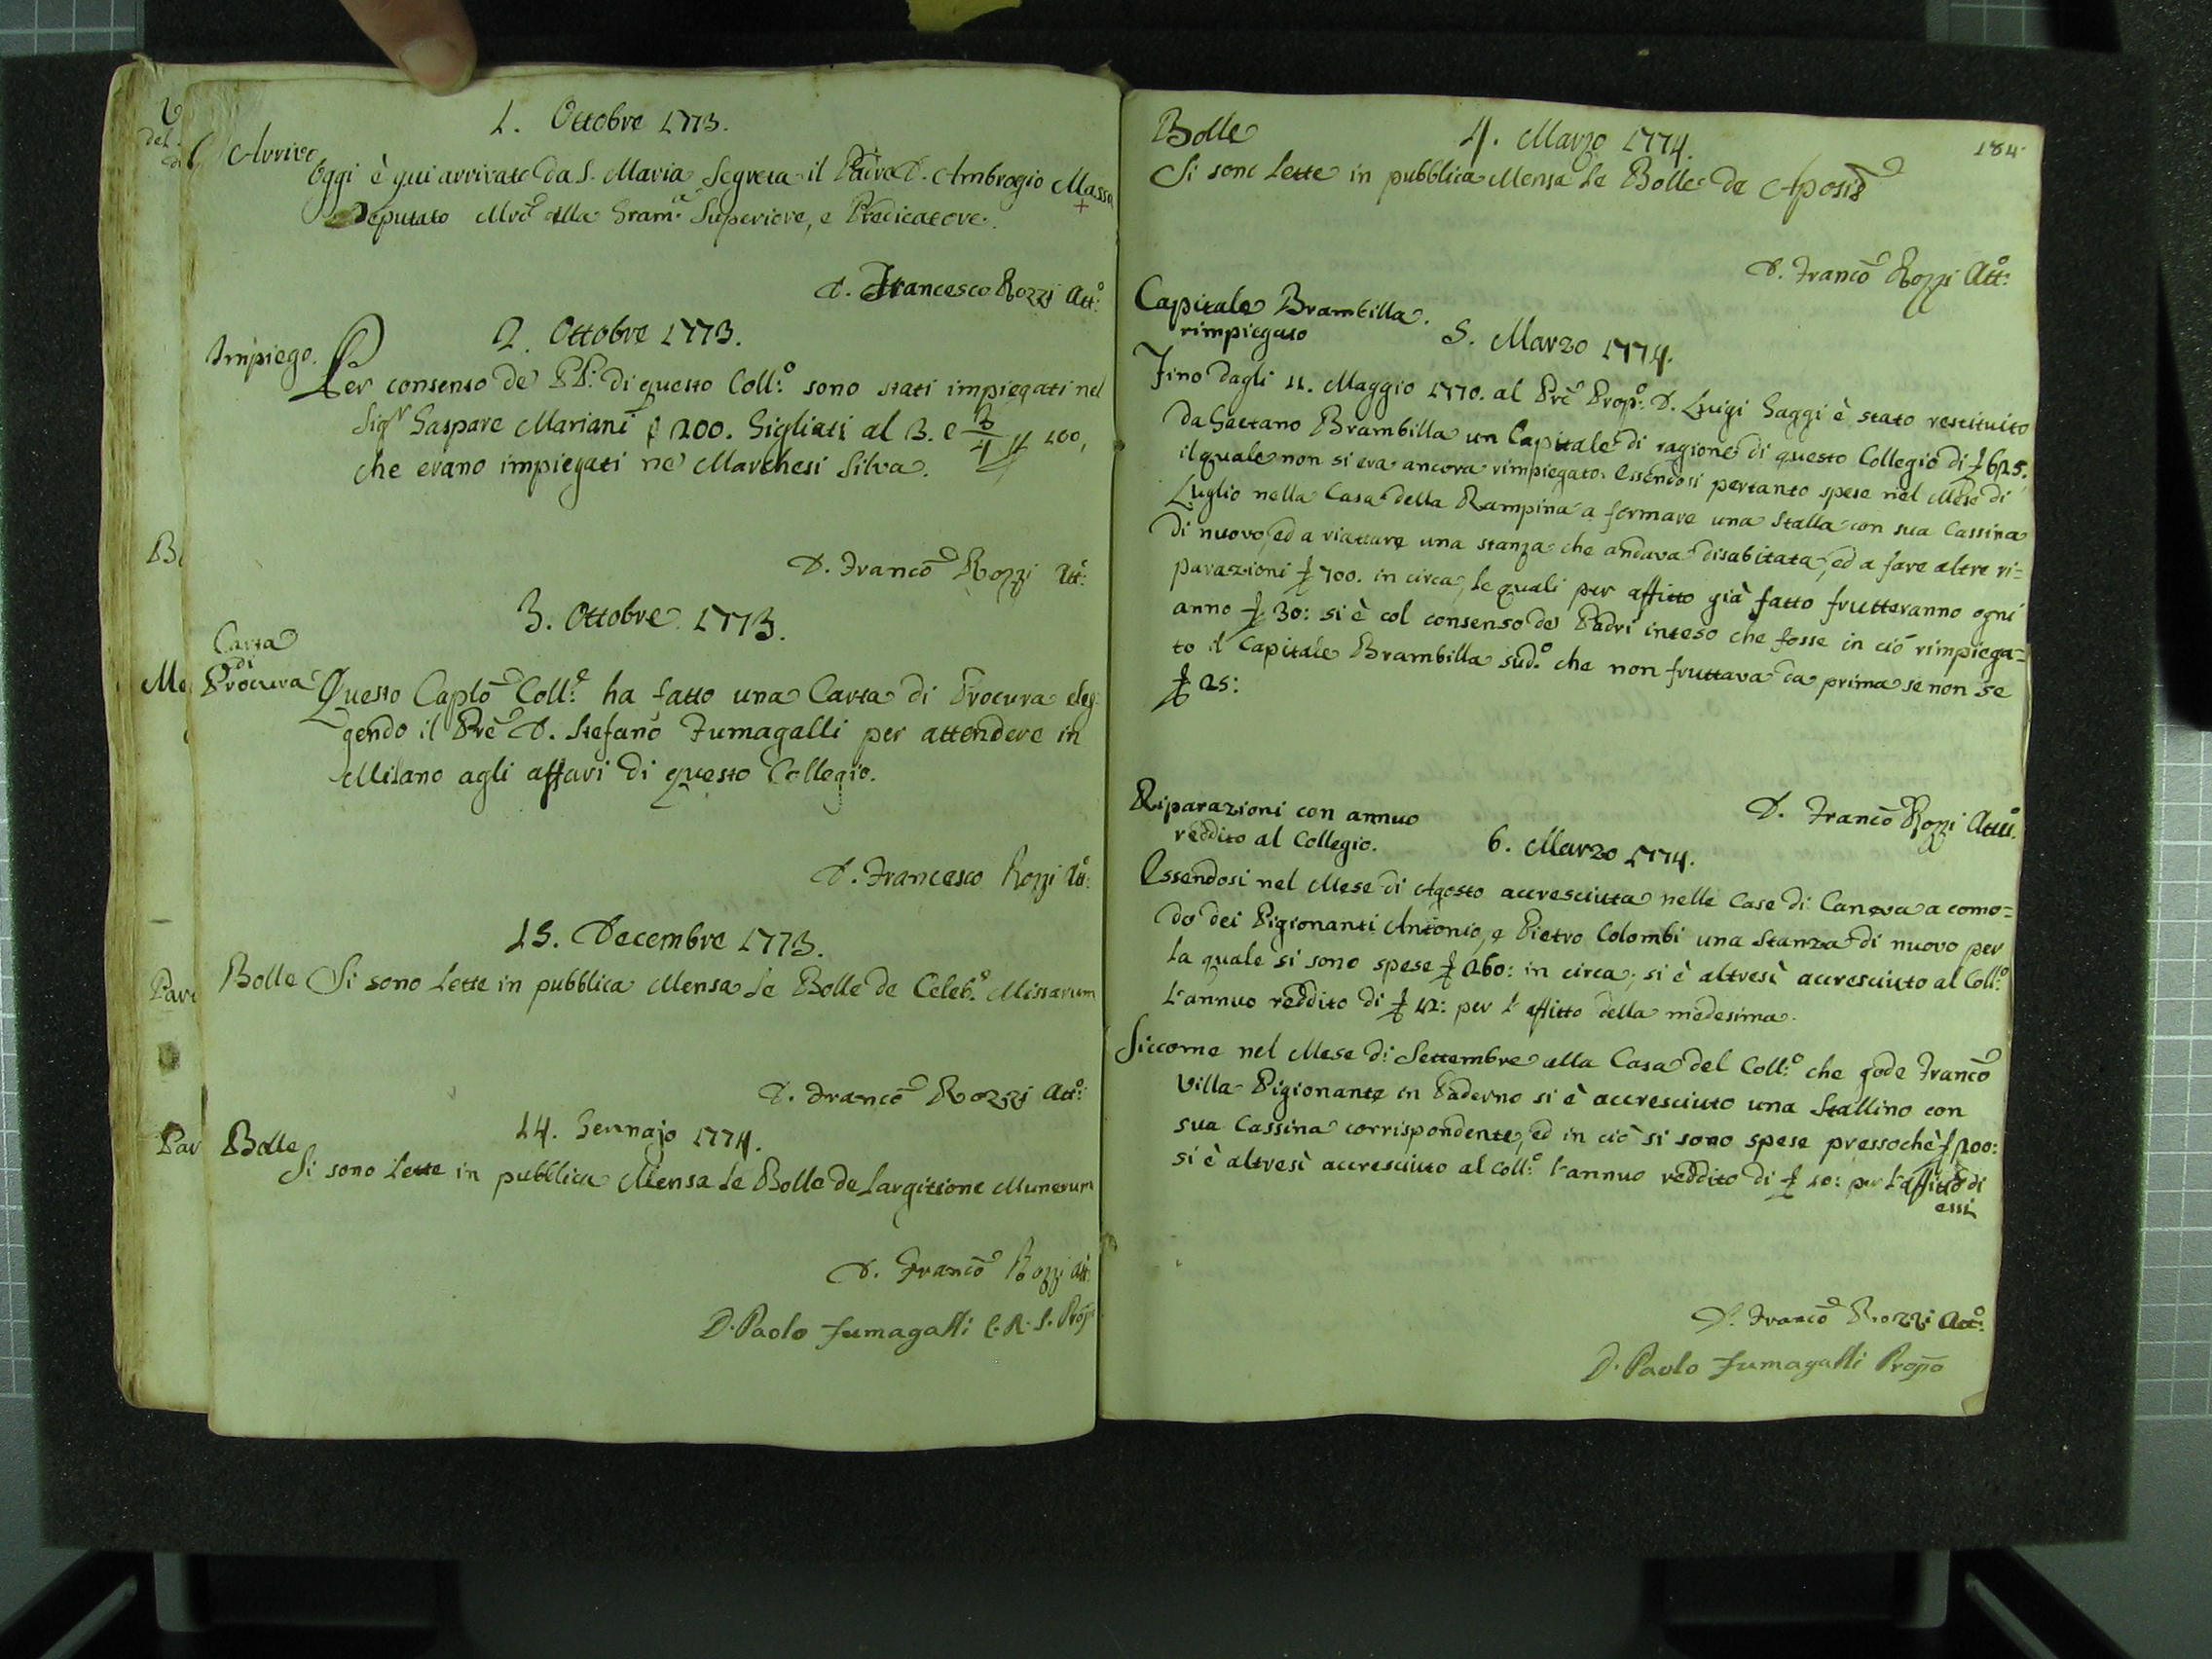 1. Ottobre 1773.
Arrivo
Oggi è qui arrivato da S. Maria Segreta il Padre D. Ambrogio Massa
Deputato Mrõ alla Gram.ª Superiore, e Predicatore.
D. Francesco Rozzi Att.º
2. Ottobre 1773.
Impiego.
Per consenso de' PP. di questo Coll.º sono stati impiegati nel
Sigr Gaspare Mariani £ 200. Gigliati al 3. e 3/4 p 100,
che erano impiegati ne' Marchesi Silva.
D. Francõ Rozzi Att.
3. Ottobre 1773.
Carta
di
Procura
Questo Caplõ Coll.º ha fatto una Carta di Procura eleg
gendo il Prẽ D. Stefano Fumagalli per attendere in
Milano agli affari di questo Collegio.
D. Francesco Rozzi Att.º
15. Decembre 1773.
Bolle Si sono Lette in pubblica Mensa le Bolle de Celeb.º Missarum
D. Francõ Rozzi Att.º
14. Gennajo 1774.
Bolle
Si sono Lette in pubblica Mensa le Bolle de Largitione Munerum
D. Francõ Rozzi Att.
D. Paolo Fumagalli C.R.S. Prop
184
Bolle
4. Marzo 1774.
Si sono Lette in pubblica Mensa le Bolle de
D. Francõ Rozzi Att.º
Capitale Brambilla.
rimpiegato
5. Marzo 1774.
Fino dagli 11. Maggio 1770. al Prẽ Prop.º D. Luigi Gaggi è stato restituito
da Gaetano Brambilla un Capitale di ragione di questo Collegio di £ 625.
il quale non si era ancora rimpiegato. Essendosi pertanto spese nel Mese di
Luglio nella Casa della Rampina a formare una Stalla con sua Cassina
di nuovo, ed a riattare una stanza che andava disabitata, ed a fare altre ri=
parazioni £ 700. in circa, le quali per affitto già fatto frutteranno ogni
anno £ 30: si è col consenso de' Padri inteso che fosse in ciò rimpiega=
to il Capitale Brambilla sud.º che non fruttava da prima se non se
£ 25:
D. Francõ Rozzi Attu.
Riparazioni con annuo
reddito al Collegio.
6. Marzo 1774.
Essendosi nel Mese di Agosto accresciuta nelle Case di Caneva a como=
do dei Pigionanti Antonio, e Pietro Colombi una Stanza di nuovo per
la quale si sono spese £ 260: in circa; si è altresì accresciuto al Coll.º
l'annuo reddito di £ 12: per l'affitto della medesima.
Siccome nel Mese di Settembre alla Casa del Coll.º che gode Francõ
Villa Pigionante in Paderno si è accresciuto una Stallino con
sua Cassina corrispondente, ed in ciò si sono spese pressochè £ 200:
si è altresì accresciuto al Coll.º l'annuo reddito di £ 10: per l'affitto di
essi
D. Francõ Rozzi Att.º
D. Paolo Fumagalli Propõ